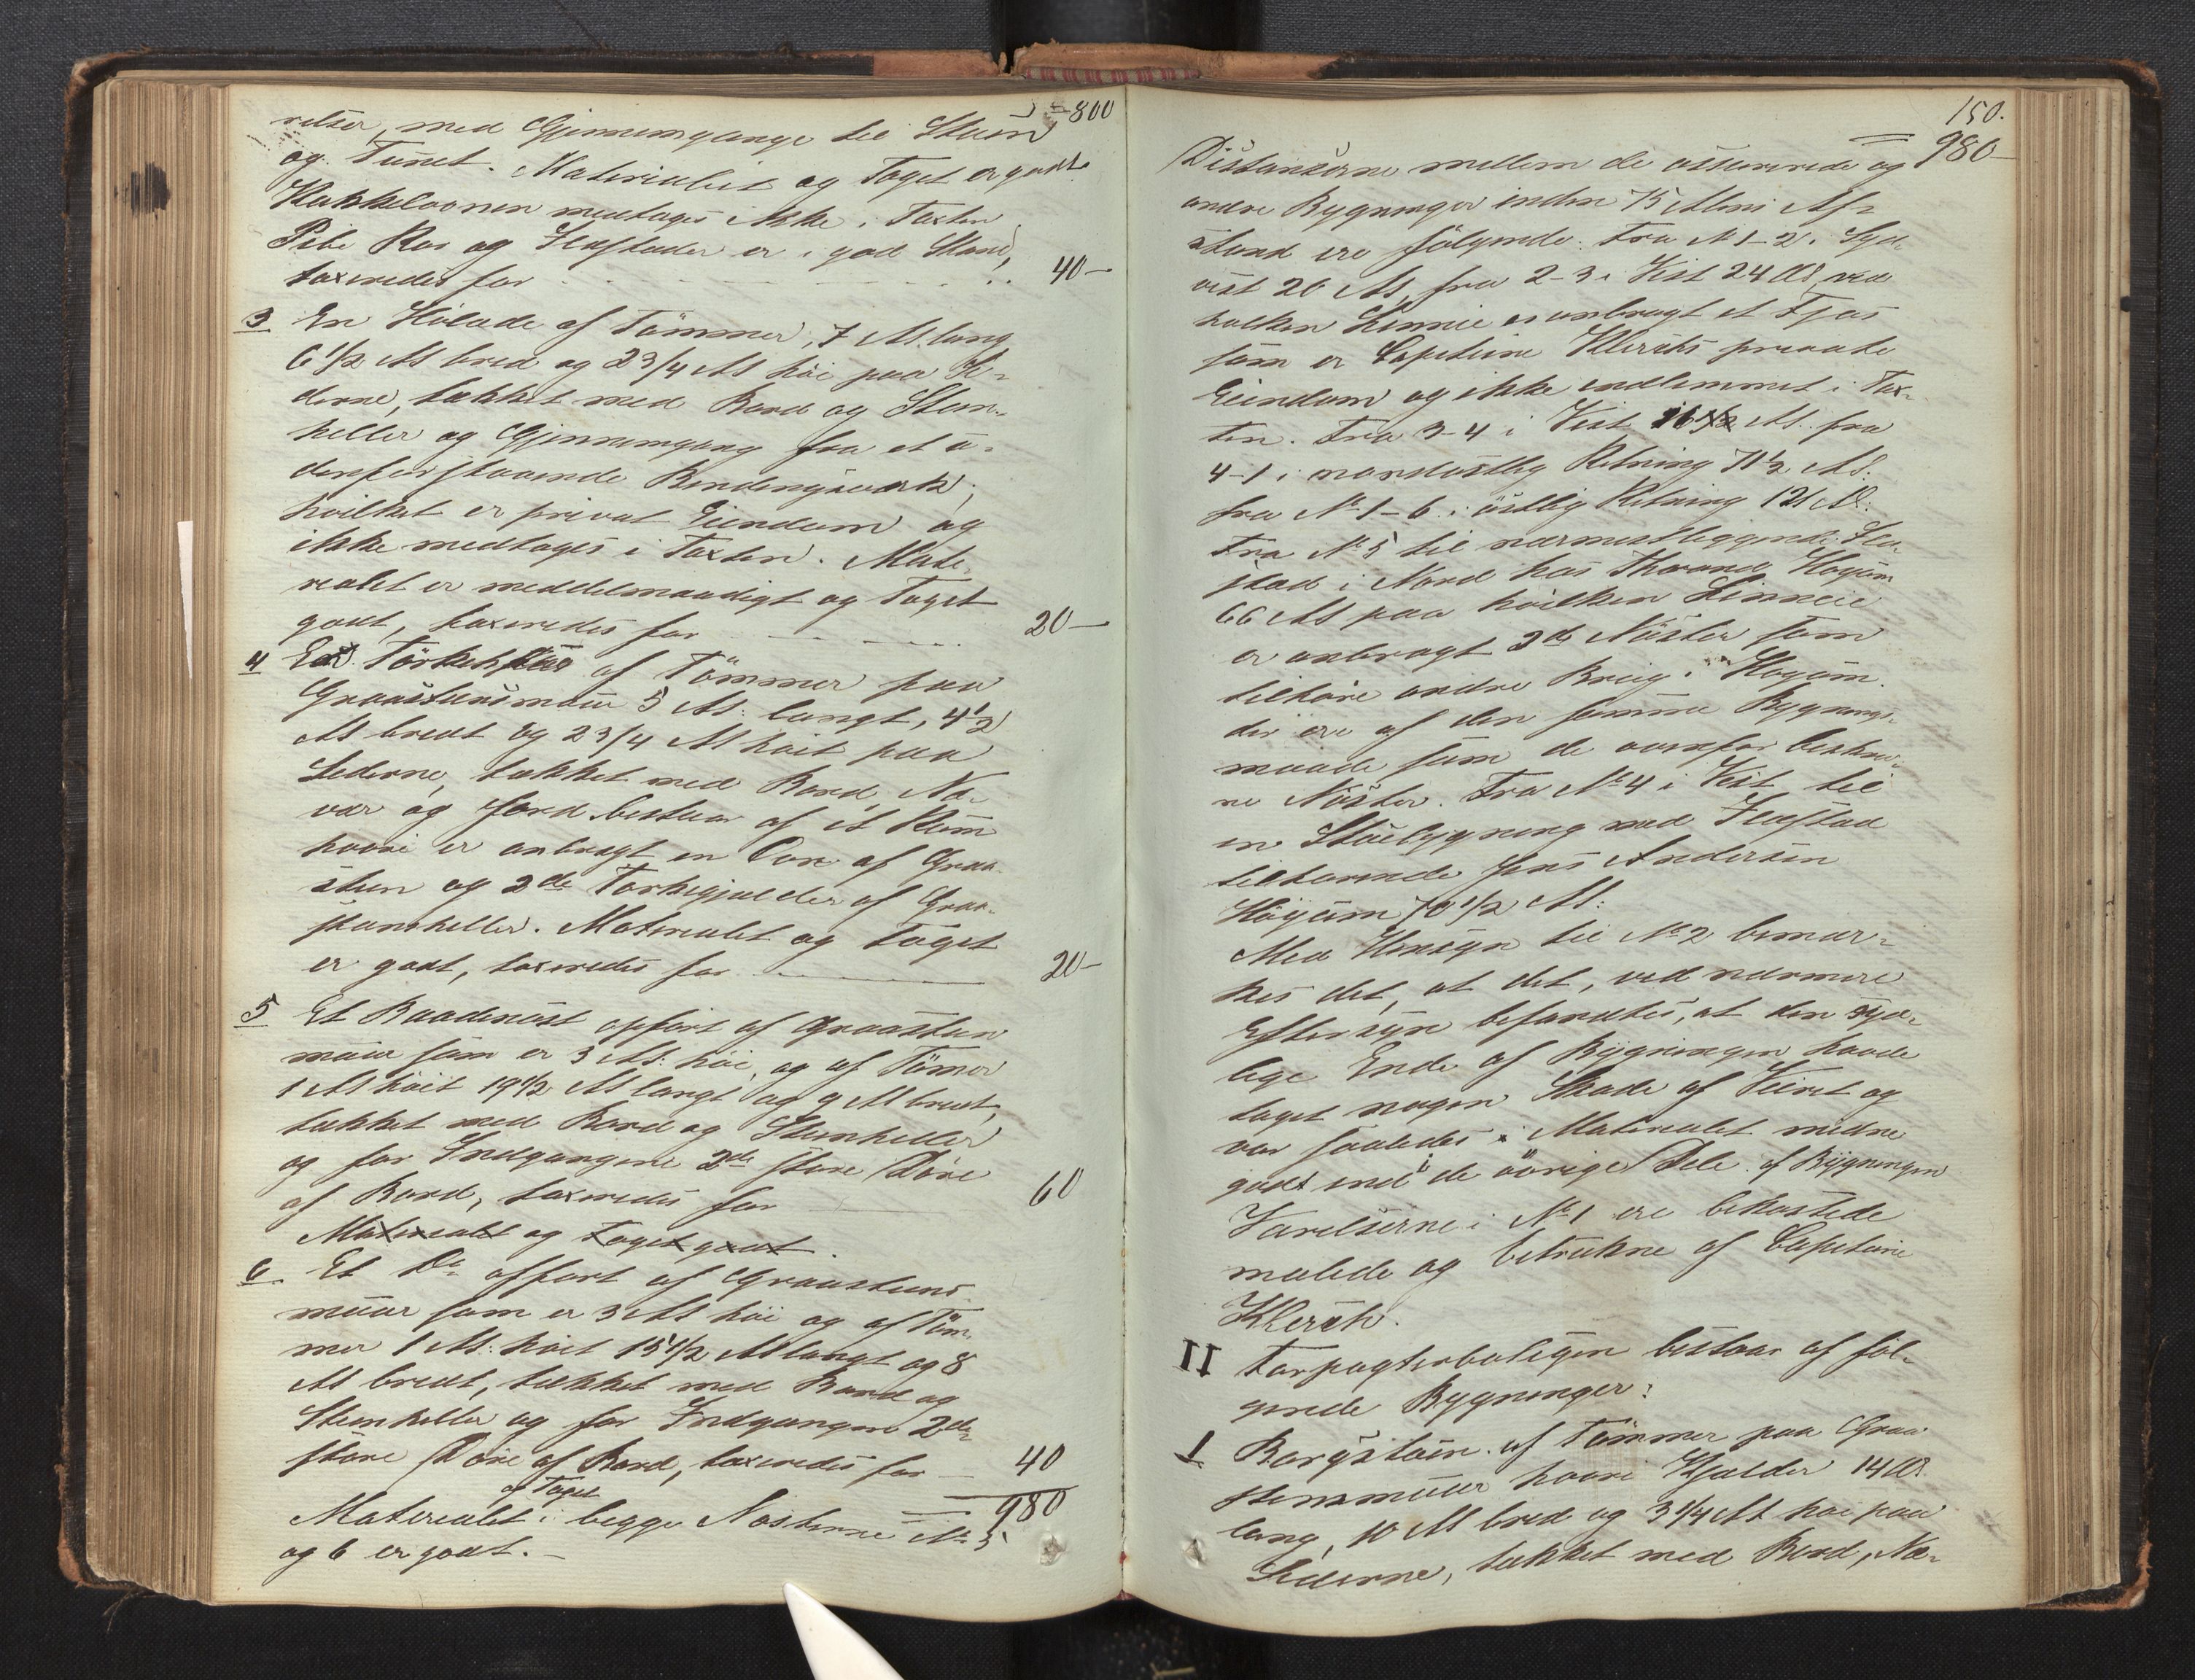 = 800
relser, med Gjennemgange til Stuen
og Tunet. Materialiet og Taget er godt
Kakkelovnen medtages ikke i Taxten
Pibe Rør og Ildstæder er i god Stand,
taxeredes for 40 -
3 En Hølade af Tömmer, 7 Al. lang
6 1/2 Al bred og 2 3/4 Al höi paa Si-
derne, tækket med Bord og Steen-
heller og Gjennemgang fra et u-
denforstaaende Bindingsværk,
hvilket er privat Eiendom og
ikke medtages i Taxten. Mate-
rialet er meddelmaadigt og Taget
godt, taxeredes for 20 -
4 Et Törkehuus af Tömmer paa
Graasteensmuur 5 Al: langt, 4 1/2
Al bredt og 2 3/4 Al höit paa
Siderne, tækket med Bord, Næ-
ver og Jord bestaar af et Rum
hvori er anbragt en Ovn af Graa-
steen og 2de Törkegjælder af Graa-
steenheller. Materialet og Taget
er godt, taxeredes for 20 -
5 Et Baadenöst opfört af Graasteen
muur som er 3 Al: höi, og af Tömer
1 Al höit 19 1/2 Al langt og 9 Al bredt,
tækket med Bord og Steenheller
og for Indgangene 2de store Döre
af Bord, taxeredes for 60
Materialet og Taget godt.
6 Et Do opfört af Graasteens
muur som er 3 Al höi og af Töm-
mer 1 Al: höit 15 1/2 Al langt og 8
Al bredt, tækket med Bord og
Steenheller og for Indgangen 2de
store Döre af Bord, taxeredes for 40
og Taget
Materialet i begge Nösterne No 5 = 980
og 6 er godt. -
150.
Distanserne mellem de assurerede og = 980 -
andre Bygninger inden 75 Alens Af-
stand ere fölgende: Fra N 1-2 i Syd-
vest 26 Al, fra 2-3 i Vest 24 Al, ved
hvilken Linnie er anbragt et Fjös
som er Capitaine Klercks private
Eiendom og ikke indlemmet i Tax-
ten. Fra 3-4 i Vest 16 Al. fra
4-1 i nordöstlig Retning 71 1/2 Al.
fra No 1-6 i östlig Retning 121 Al:
Fra No 5 til nærmestliggende Ild-
stæd i Nord hos Thorvand Hoyum
66 Al paa hvilken Linneie
er anbragt 3de Nöster som
tilhöre andre Brug i Hoyum.
der ere af den samme Bygnings-
maade som de ovenfor beskrev-
ne Nöster. Fra No 4 i Vest til
en Stuebygning med Ildstæd
tilhörende Jens Andersen
Höyum 70 1/2 Al:
Med Hensyn til No 2 bemær-
kes det, at det, ved nærmere
Eftersyn befandtes, at den syd-
lige Ende af Bygningen havde
taget nogen Skade af Veiret og
var saaledes i Materialet mindre
godt end i de övrige Dele af Bygningen
Værelserne i No 1 ere bekostede
malede og betrukne af Capitaine
Klerck.
II Forpagterboligen bestaar af föl-
gende Bygninger:
1 Borgstuen af Tömmer paa Graa
steensmuur hvori Kjelder 14 Al
lang, 10 Al bred og 3 1/4 Al höi paa
Siderne, tækket med Bord, Næ-